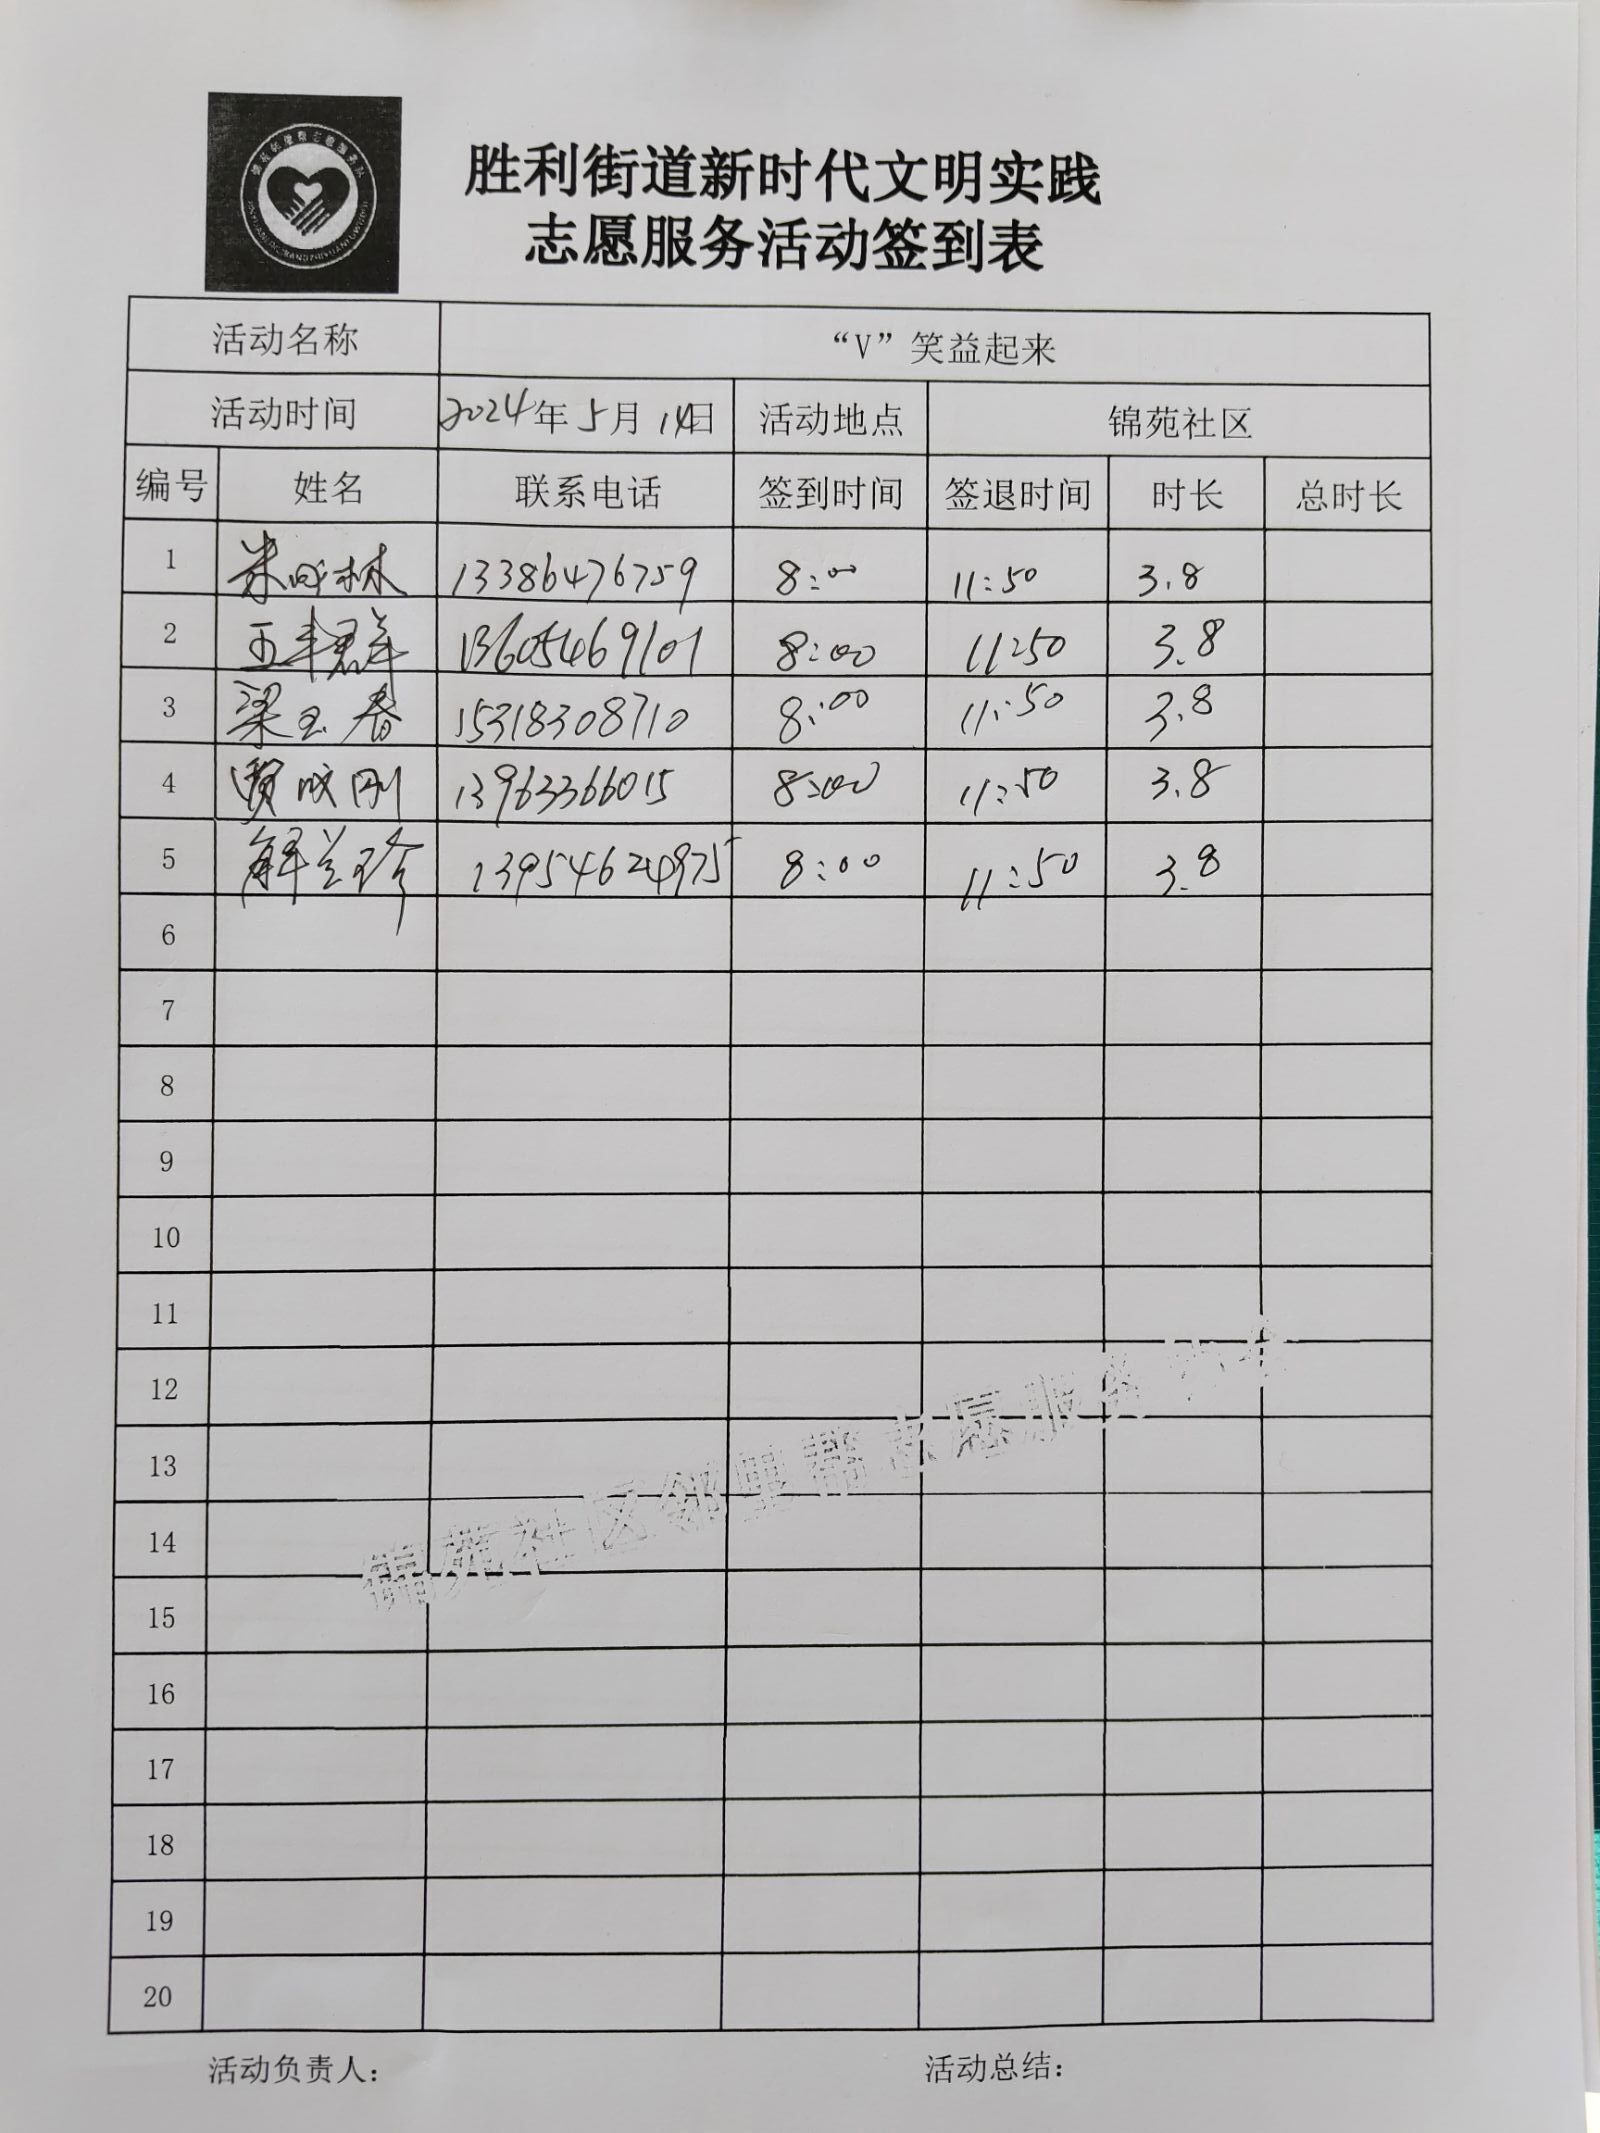 胜利街道新时代文明实践
志愿服务活动签到表
活动名称 “V”笑益起来
活动时间 2024年5月14日 活动地点 锦苑社区
编号 姓名 联系电话 签到时间 签退时间 时长 总时长
1 朱成林 13386476759 8:00 11:50 3.8
2 王丰群 13605469101 8:00 11:50 3.8
3 梁玉春 15318308710 8:00 11:50 3.8
4 贾成刚 13963366015 8:00 11:50 3.8
5 解兰珍 8:00 11:50 3.8
6
7
8
9
10
11
12
13
14
15
16
17
18
19
20
锦苑社区邻里帮志愿服务队
活动负责人: 活动总结: